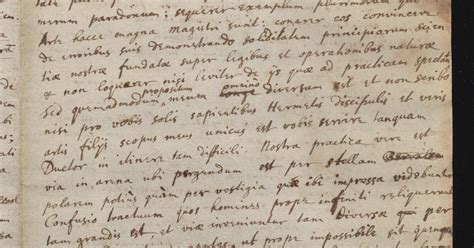 merum paradoxum; sequerer exemplum plurimorum qui
Arte hacce magnâ Magistri sunt; conarer eos convincere
de erroribus suis demonstrando soliditatem principiorum Scien
tiæ nostræ fundatæ super legibus et operationibus naturæ
& non loquerer nisi leviter de ijs quæ ad Practicam spectant
Sed quemadmodum propositum meum omnino diversum est et non scribo
nisi pro vobis solis sapientibus Hermetis discipulis et veris
artis filijs scopus meus unicus est vobis servire tanquam
Ductor in itinere tam difficili. Nostra practica vere est
via in arena ubi pergendum est per stellam
polarem potius quàm per vestigia quæ ibi impressa vidobuntur
Confusio tractuum quos homines prope infiniti reliquerunt
tam grandis est, et viæ inveniuntur tam diversæ qui per